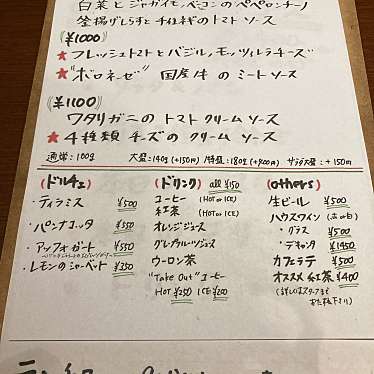 白菜とジャガイモ、ベーコンのペペロンチーノ
釜揚げしらすと
トマトソース
《¥1000》
★フレッシュトマトとバジル、モッツァレラチーズ
★"ボロネーゼ" 国産牛のミートソース
《¥1100》
ワタリガニのトマトクリームソース
★4種類チーズのクリームソース
通常:100g 大盛:140g(+150円) 特盛:180g(+400円) サラダ大盛:+150円
(ドルチェ)
・ティラミス ¥500
・パンナコッタ ¥550
・アッフォガート ¥550
・レモンのシャーベット ¥350
(ドリンク) all ¥150
コーヒー (HOT or ICE)
紅茶 (HOT or ICE)
オレンジジュース
グレープフルーツジュース
ウーロン茶
"Take Out" コーヒー
HOT ¥250 ICE ¥200
(others)
生ビール ¥500
ハウスワイン (赤or白)
・グラス ¥500
・デキャンタ ¥1450
カフェラテ ¥500
オススメ紅茶 ¥400
(詳しくはスタッフまで